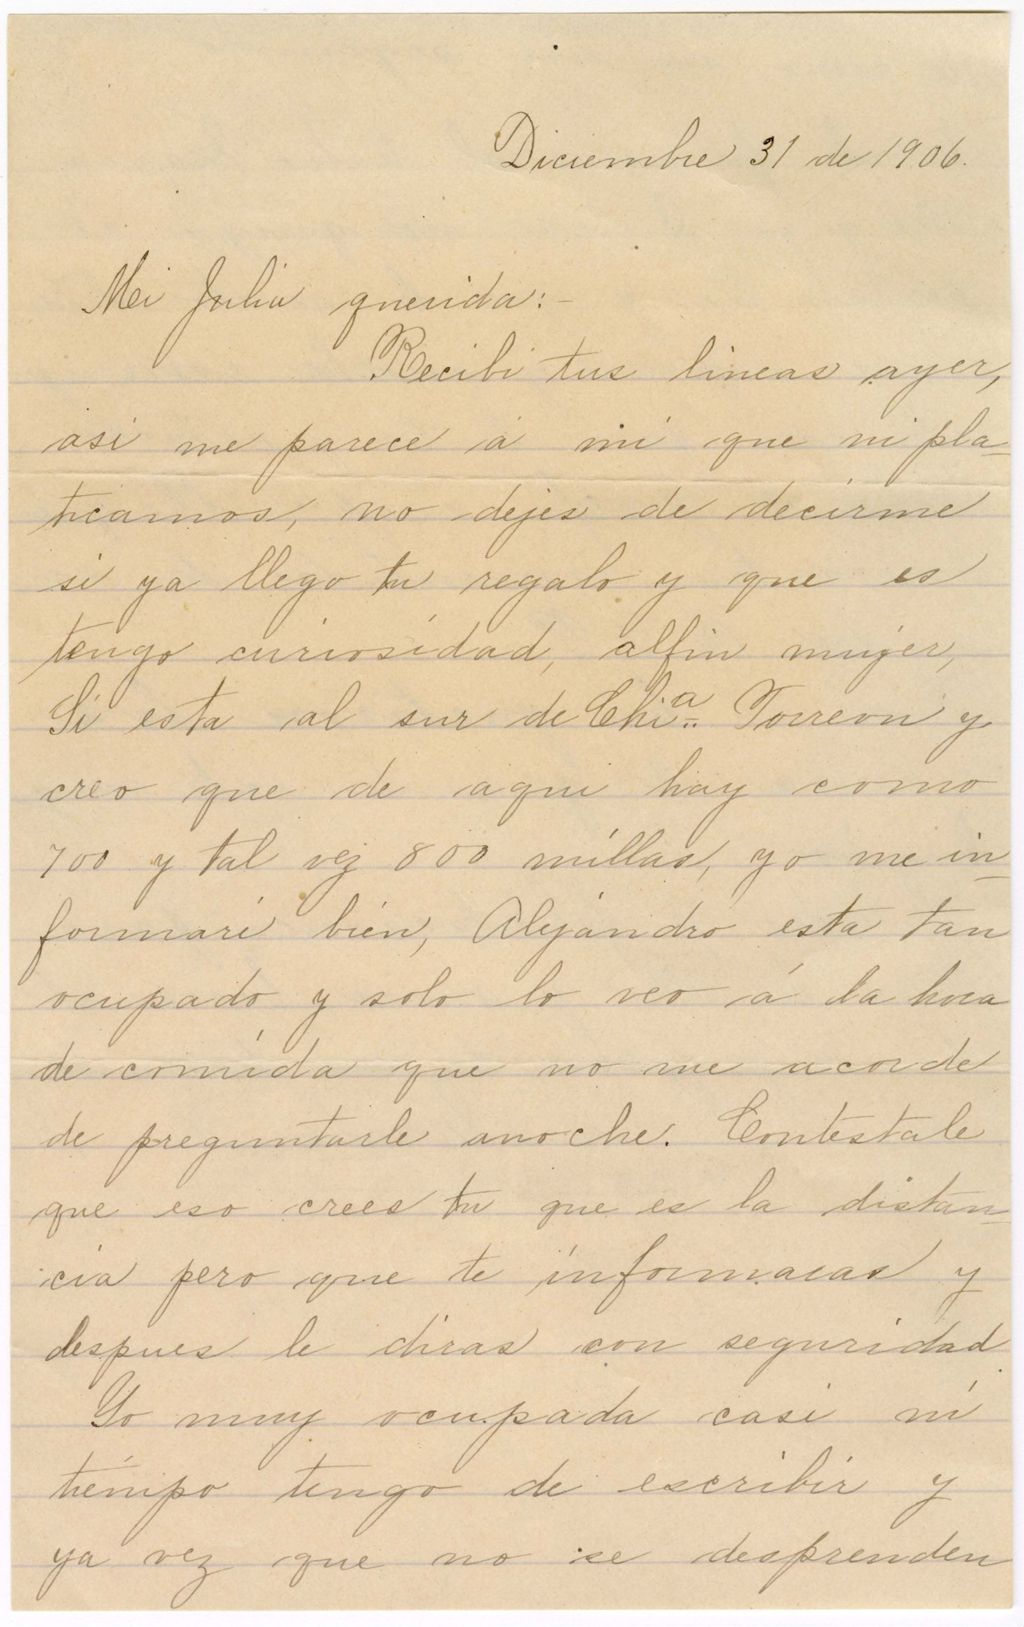 Diciembre 31 de 1906.
Mi Julia querida:-
Recibi tus lineas ayer,
asi me parece á mi que ni pla-
ticamos, no dejes de decirme
si ya llego tu regalo y que es
tengo curiosidad, alfin mujer,
Si esta al sur de Chia. Torreon y
creo que de aqui hay como
700 y tal vez 800 millas, yo me in-
formaré bién, Alejándro esta tan
ocupado y solo lo veo á la hora
de comida que no me acorde
de preguntarle anoche. Contestale
que eso crees tu que es la distan-
cia pero que te informaras y
despues le diras con seguridad
Yo muy ocupada casi ni
tiémpo tengo de escribir y
ya vez que no se desprenden